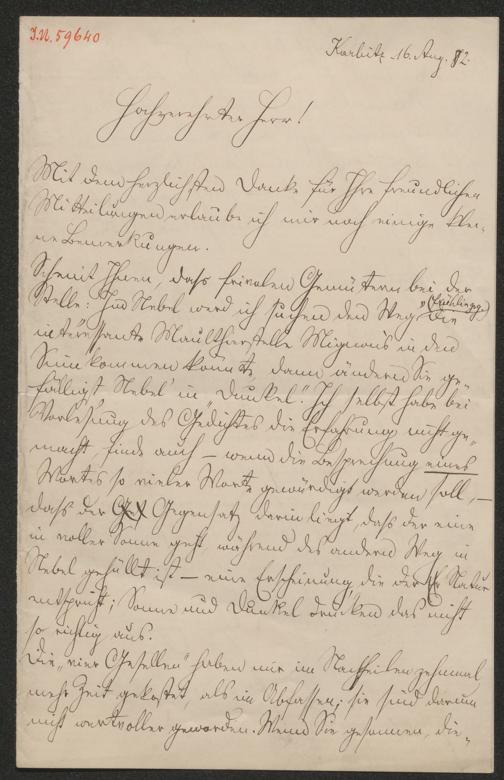 I.N. 59640
Karbitz 16. Aug. 82.
Hochverehrter Herr!
Mit dem herzlichsten Danke für Ihre freundlichen
Mitteilungen erlaube ich mir noch einige klei-
ne Bemerkungen.
Scheint Ihnen, dass frivolen Gemütern bei der
Stelle: Im Nebel werd ich suchen den Weg die
interessante Maultherstelle Mignons in den
Sinn kommen könnte, dann ändern Sie ge-
fälligst Nebel in „Dunkel“. Ich selbst habe bei
Vorlesung des Gedichtes die Erfahrung nicht ge-
macht, finde auch – wenn die Besprechung eines
Wortes so vieler Worte gewürdigt werden soll, –
dass der Gegensatz darin liegt, dass der eine
in voller Sonne geht während des andern Weg in
Nebel gehüllt ist – eine Erscheinung, die der Natur
entspricht; Sonne und Dunkel drücken das nicht
so richtig aus.
Die „vier Gesellen“ haben mir im Nachfeilen zehnmal
mehr Zeit gekostet, als im Abfassen; sie sind darum
nicht wertvoller geworden. Wenn Sie gesonnen, die-